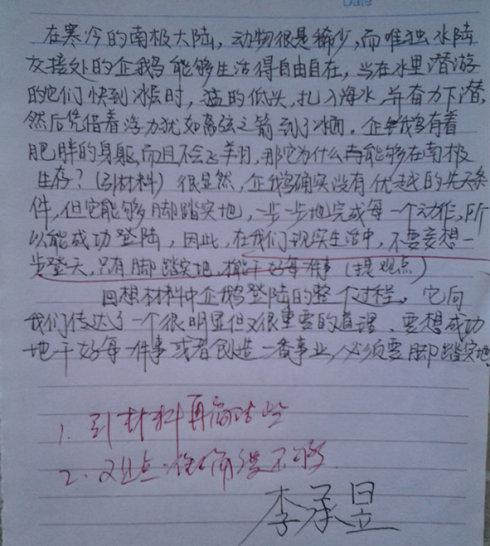 Date
在寒冷的南极大陆，动物很是稀少，而唯独水陆
交接处的企鹅能够生活得自由自在，当在水里潜游
的它们快到冰层时，猛的低头，扎入海水，并奋力下潜，
然后凭借着浮力犹如离弦之箭到了冰面。企鹅有着
肥胖的身躯，而且不会飞翔，那它为什么而能够在南极
生存？（引材料）很显然，企鹅确实没有优越的先天条
件，但它能够脚踏实地，一步一步地完成每一个动作，所
以能成功登陆，因此，在我们现实生活中，不要妄想一
步登天，只有脚踏实地，才能干好每件事（提观点）
回想材料中企鹅登陆的整个过程。它向
我们传达了一个很明显但又很重要的道理，要想成功
地干好每一件事或者创造一番事业，必须要脚踏实地
1. 引材料再简洁些
2. 观点
李承昱